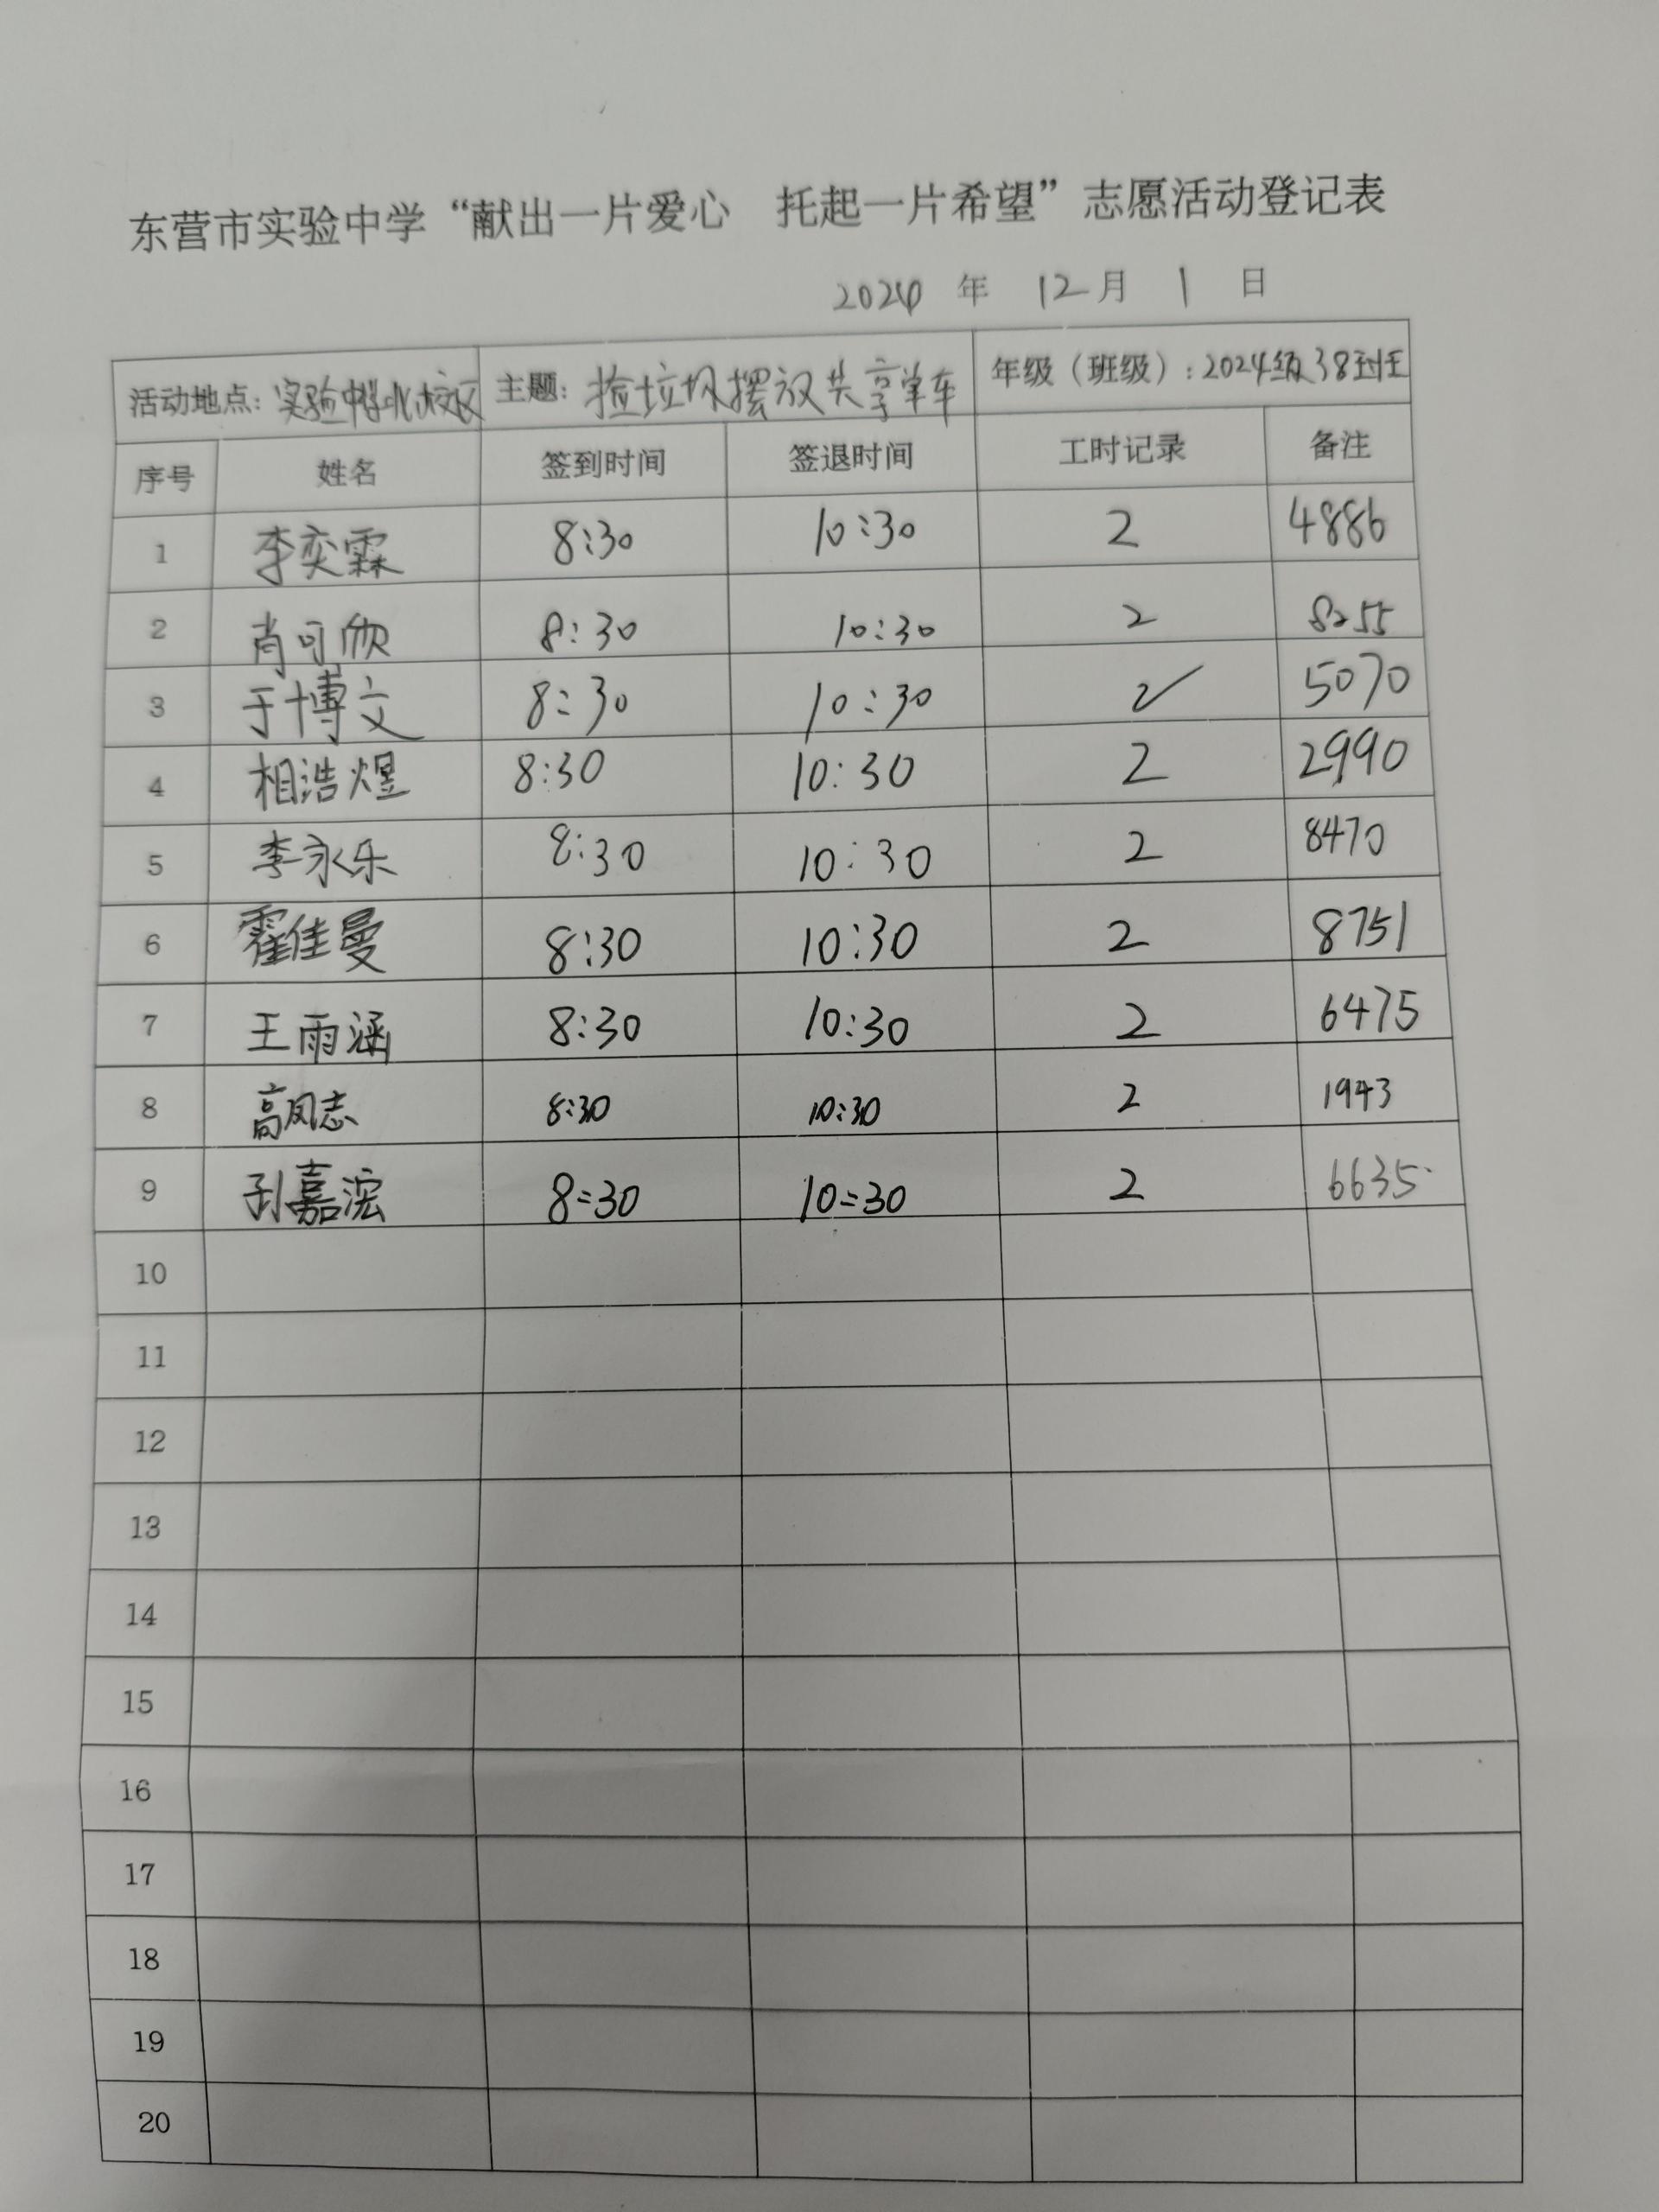 东营市实验中学“献出一片爱心 托起一片希望”志愿活动登记表
2024 年 12 月 1 日
活动地点：实验中学北校区 主题：捡垃圾摆放共享单车 年级（班级）：2024级38班
序号 姓名 签到时间 签退时间 工时记录 备注
1 李奕霖 8:30 10:30 2 4886
2 肖可欣 8:30 10:30 2 8255
3 于博文 8:30 10:30 2 5070
4 相浩煜 8:30 10:30 2 2990
5 李永乐 8:30 10:30 2 8470
6 霍佳曼 8:30 10:30 2 8751
7 王雨涵 8:30 10:30 2 6475
8 高凤志 8:30 10:30 2 1943
9 孙嘉浤 8:30 10:30 2 6635
10
11
12
13
14
15
16
17
18
19
20